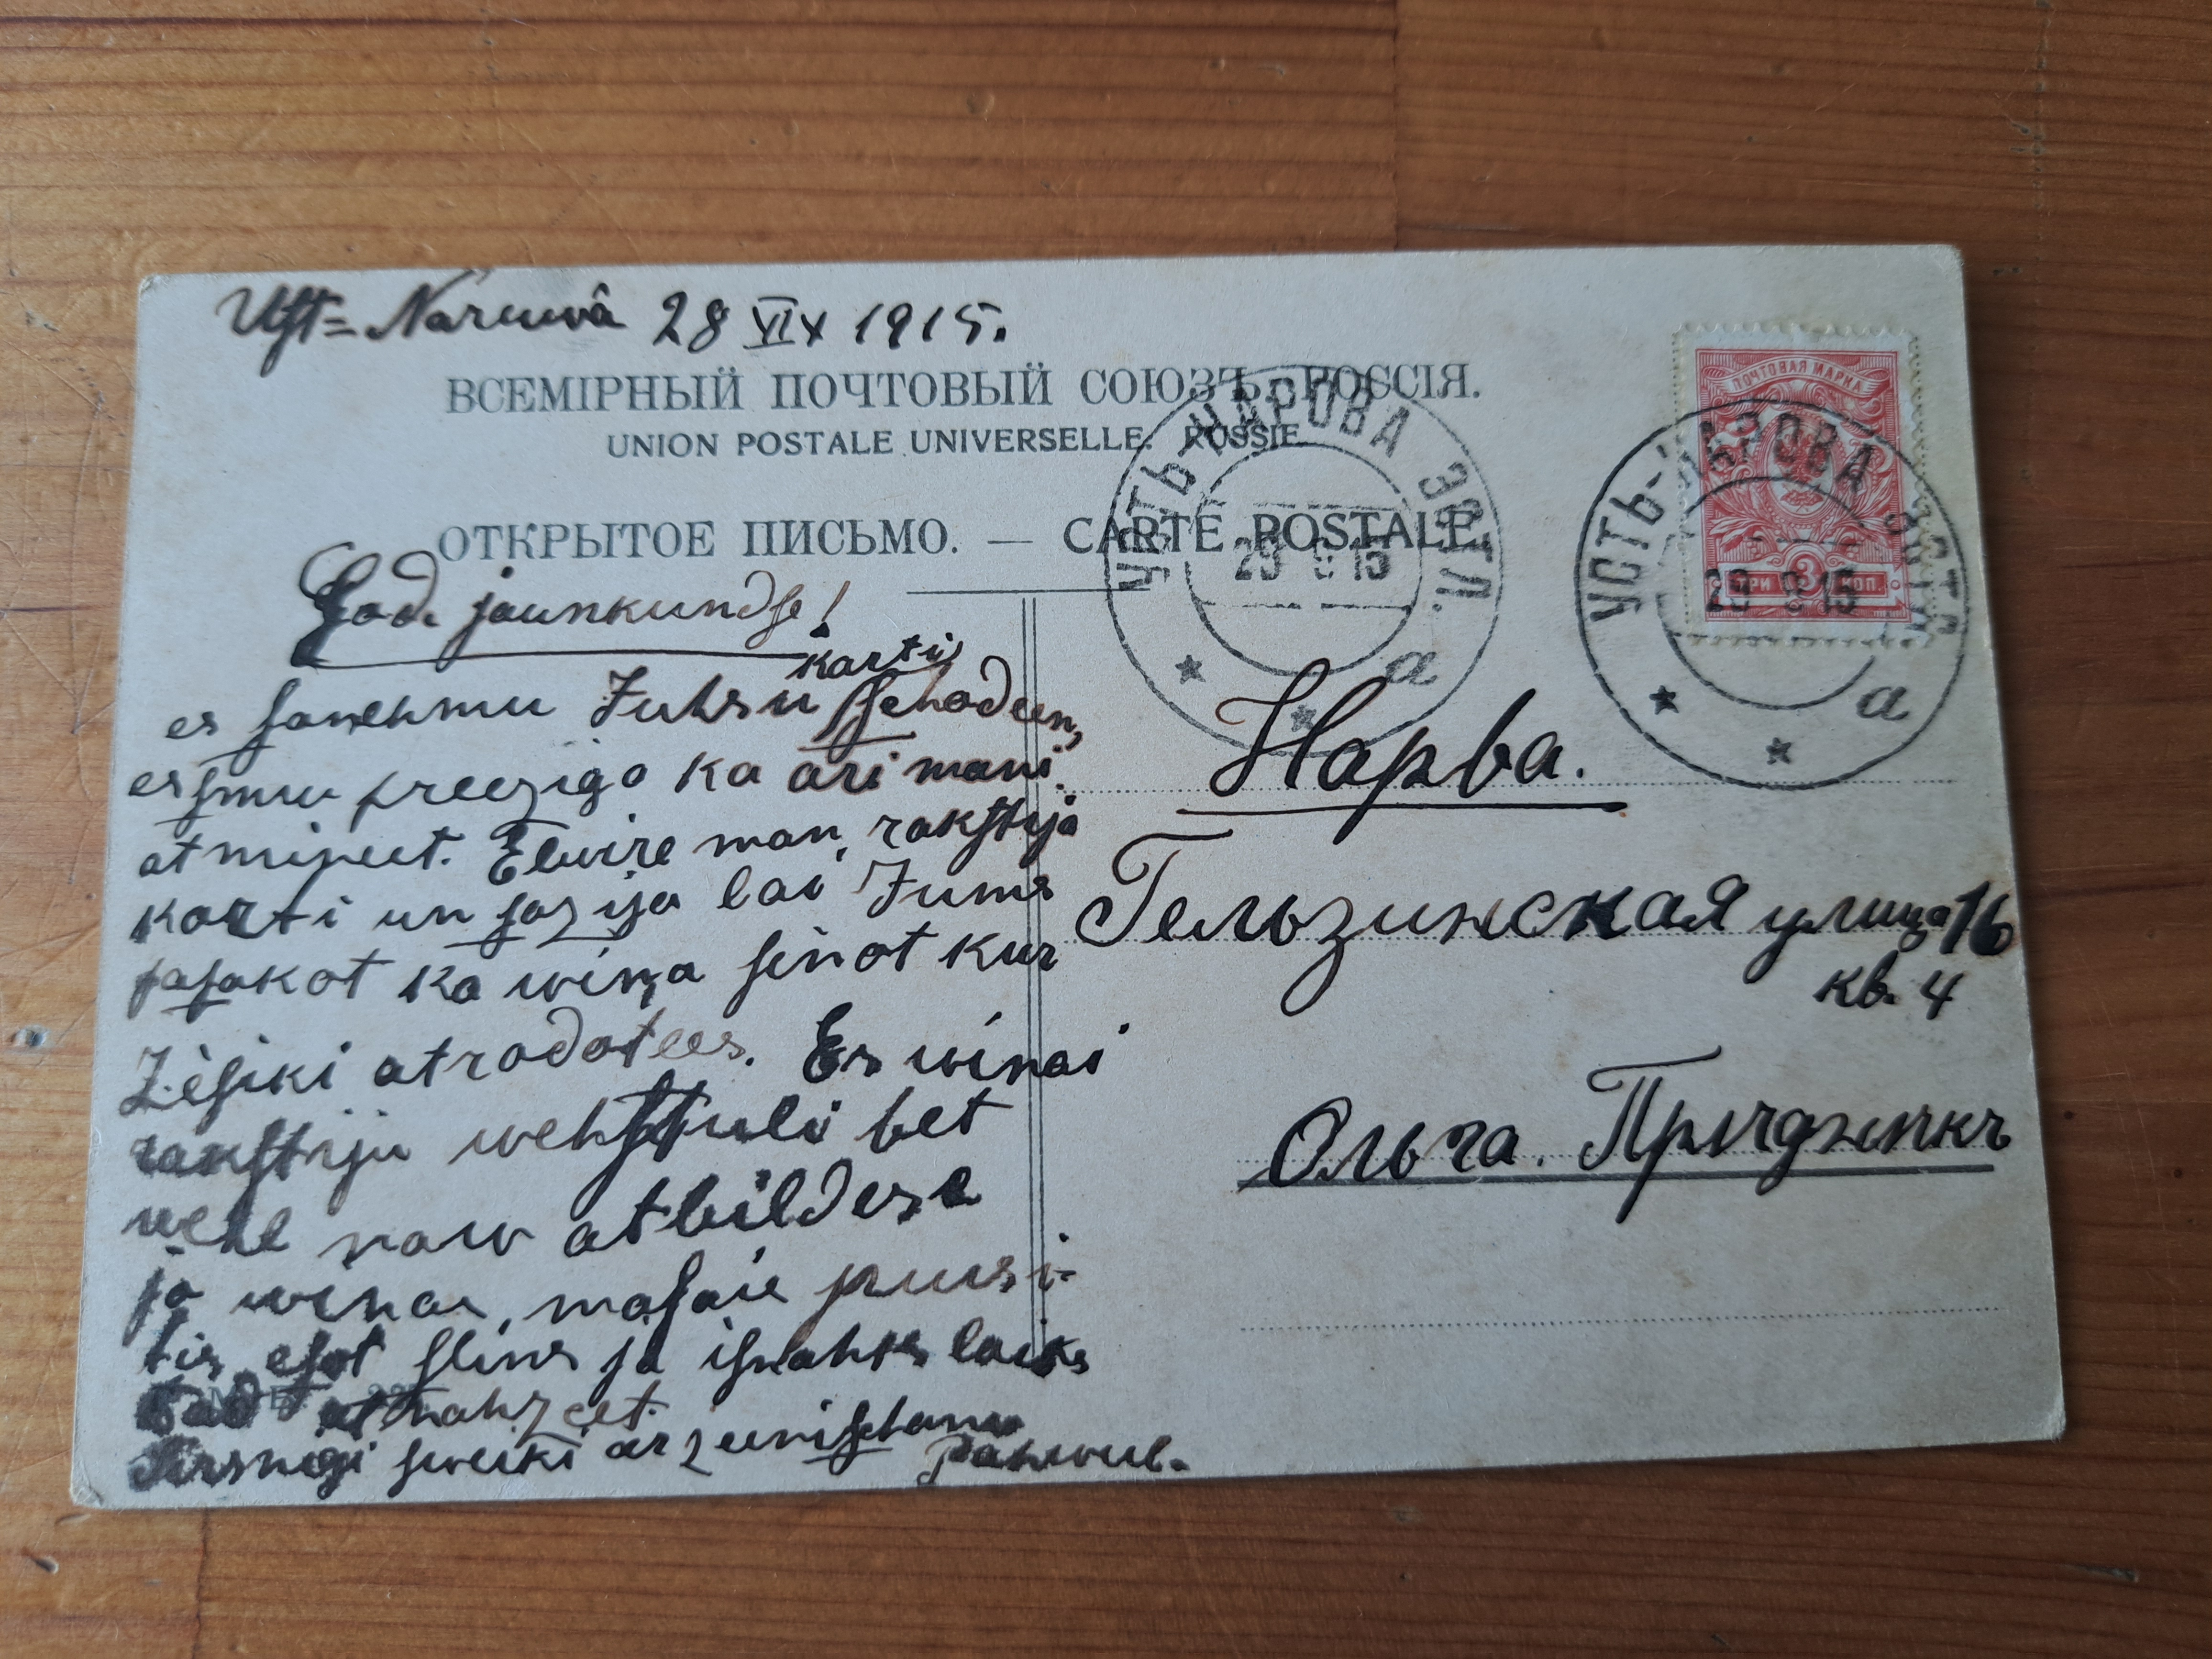 Uſt=Narwâ 28 VIII 1915.
ВСЕМІРНЫЙ ПОЧТОВЫЙ СОЮЗЪ. РОССІЯ.
UNION POSTALE UNIVERSELLE. RUSSIE.
ОТКРЫТОЕ ПИСЬМО. — CARTE POSTALE.
УСТЬ-НАРОВА ЭСТЛ.
29 8 15
а
ПОЧТОВАЯ МАРКА
3
ТРИ КОП.
УСТЬ-НАРОВА ЭСТЛ.
29 8 15
а
God. jaunkundſe!
karti
es ſanehmu Juhsu ſchodeen,
eſmu preeziga ka ari mani
atmineet. Elwire man rakſtija
karti un ſazija lai Jums
paſakot ka wiņa ſinot kur
atrodotees. Es wiņai
rakſtiju wehſtuli bet
wehl naw atbildese
ja
eſot ſlims ja iſnahks laiks
tad atnahzeet.
Sirsnigi ſweiki ar zeeniſchanu
Нарва.
Гельзинская улица 16
кв. 4
Ольга.